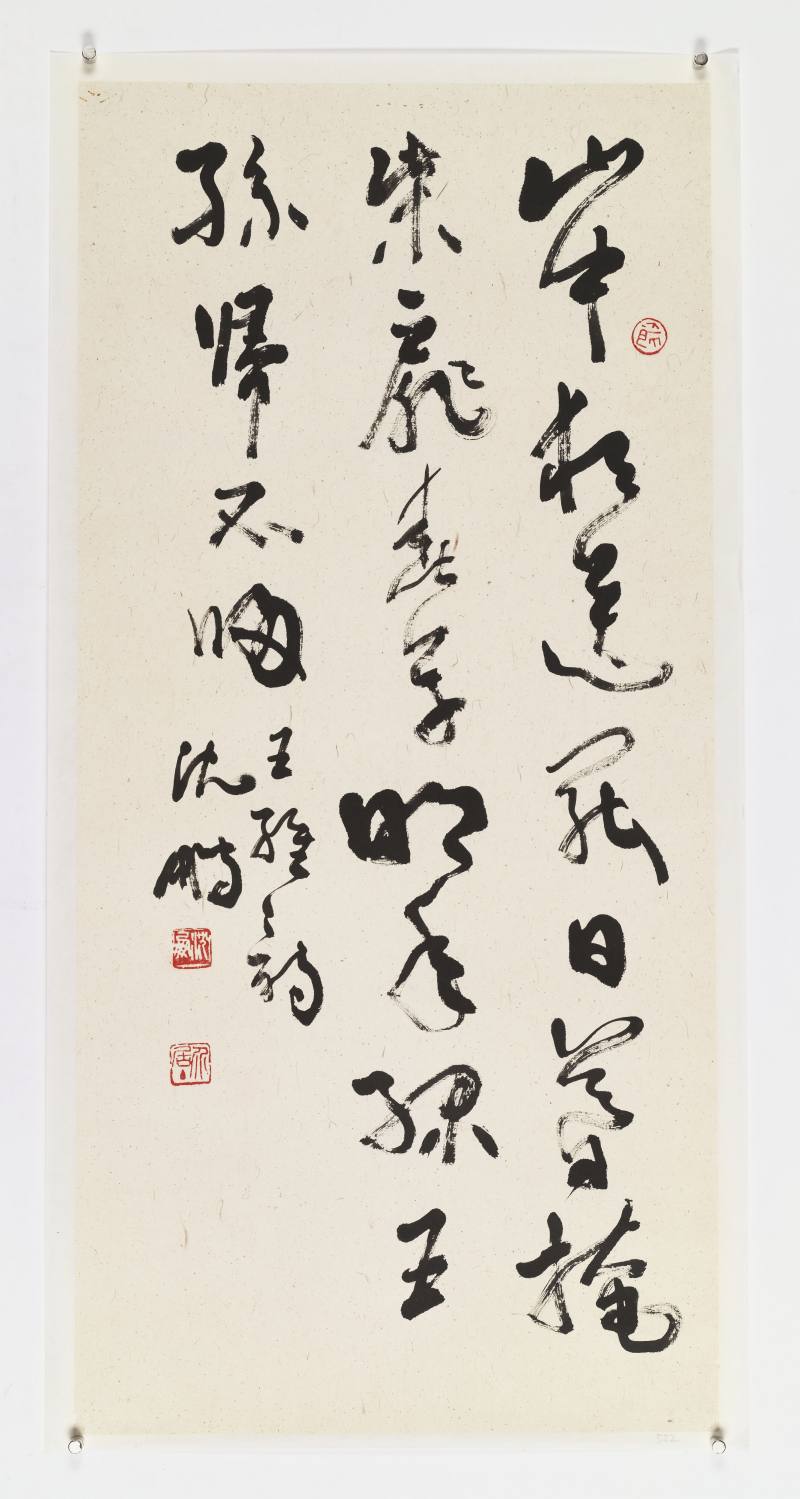 山中相送罷日暮掩
柴扉春草明年綠王
孫歸不歸
王維之詩
沈鵬
沈鵬
介居